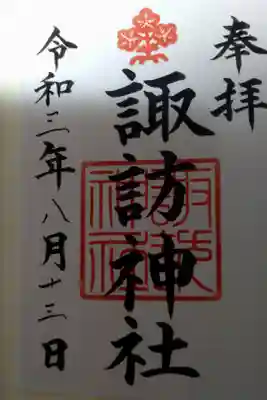 奉拝
諏訪神社
令和三年八月十三日